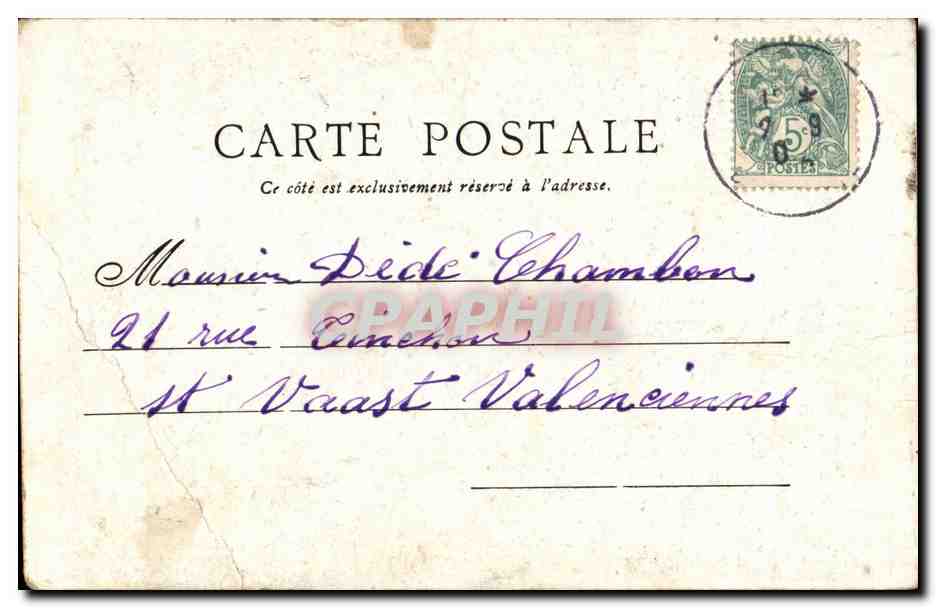 CARTE POSTALE
Ce côté est exclusivement réservé à l'adresse.
5c
POSTES
Monsieur Dédé Chambon
CPAPHIL
21 rue
St Vaast Valenciennes